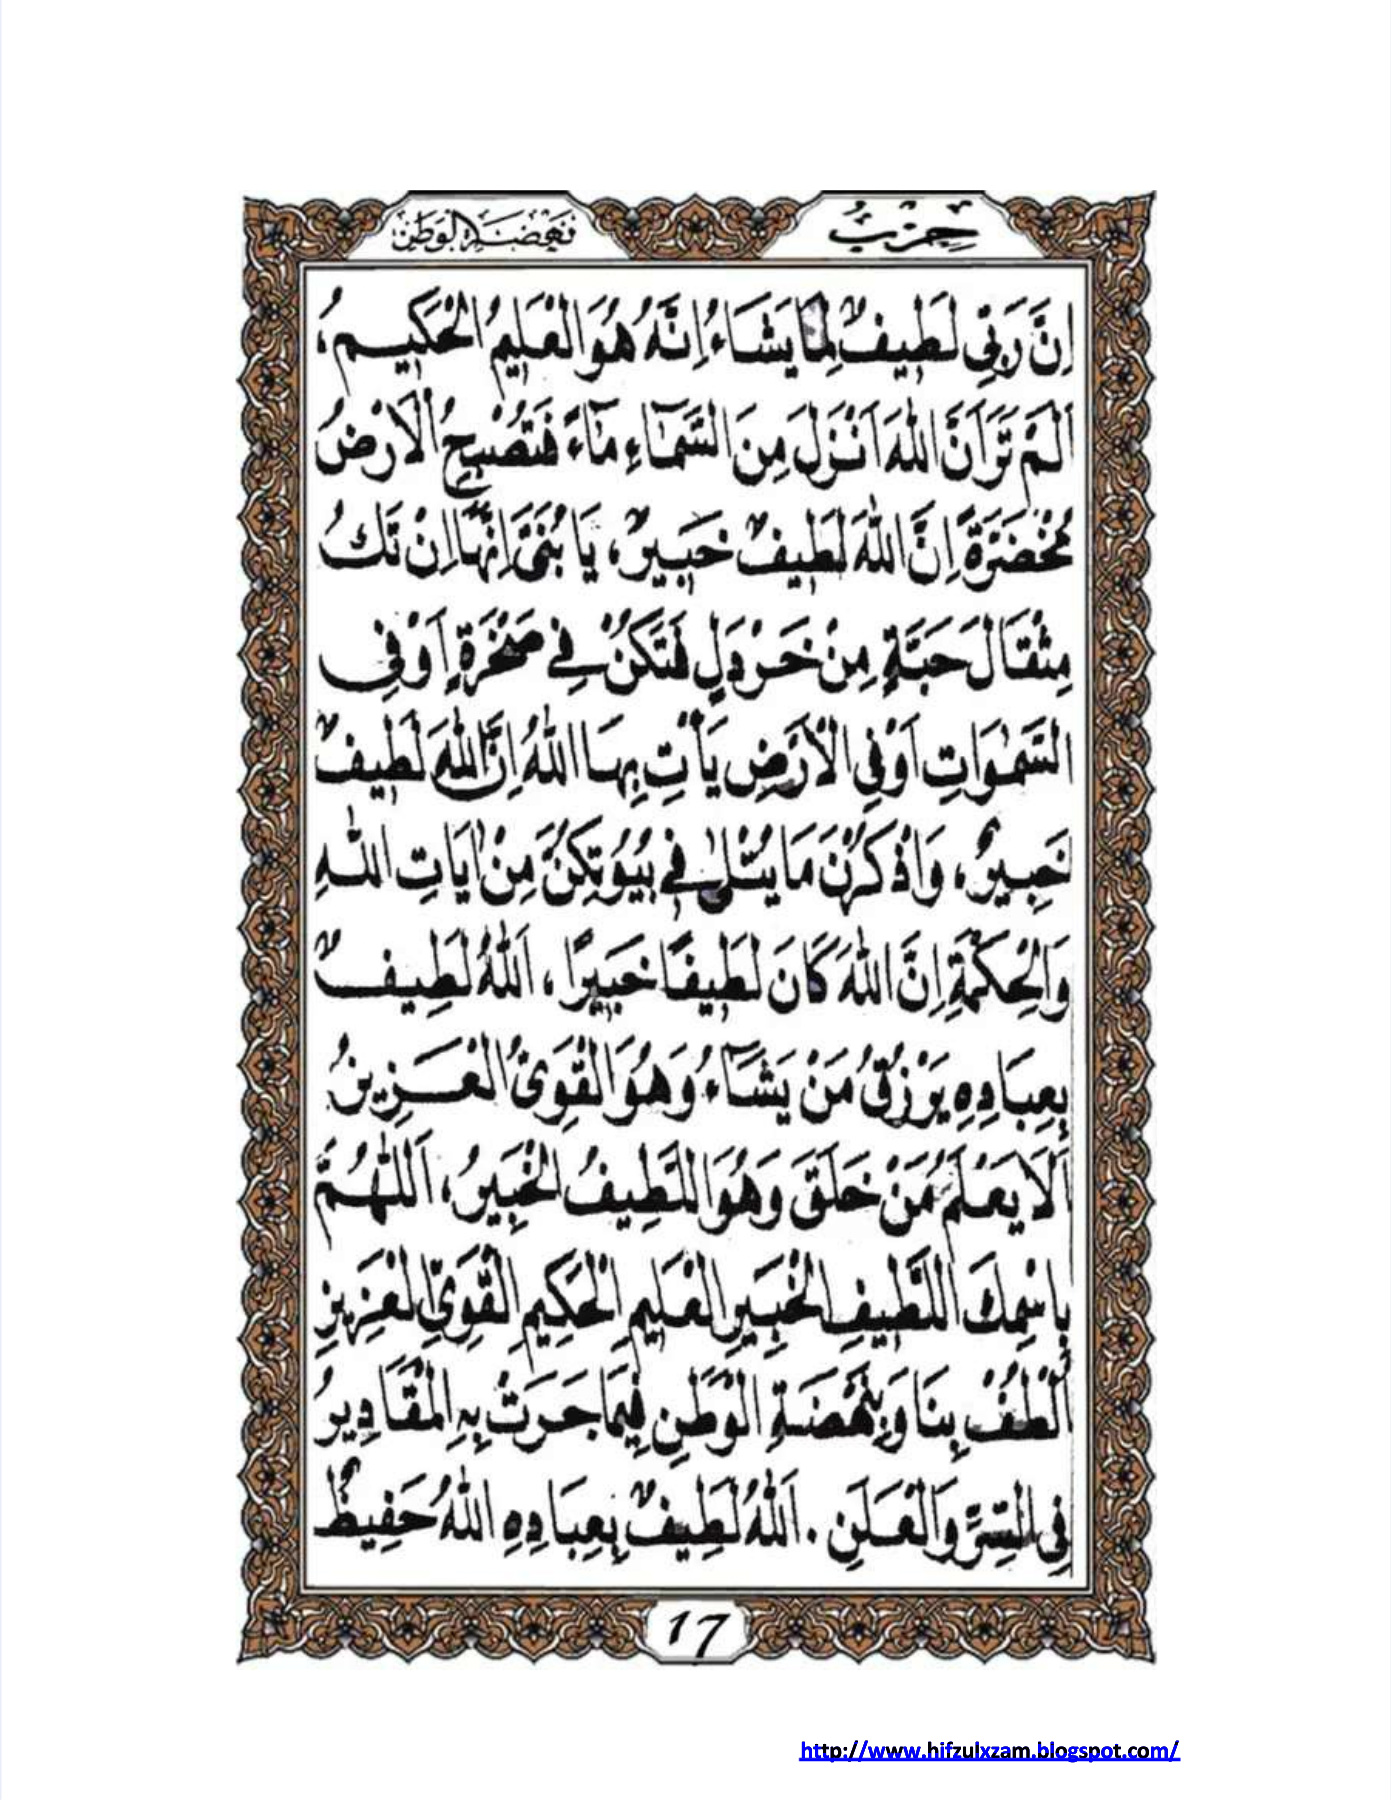 حِزْبُ
نَهْضَةِ الْوَطَنِ
اِنَّ رَبِّى لَطِيفٌ لِمَا يَشَاءُ اِنَّهُ هُوَ الْعَلِيمُ الْحَكِيمُ،
اَلَمْ تَرَ اَنَّ اللهَ اَنْزَلَ مِنَ السَّمَآءِ مَآءً فَتُصْبِحُ الْاَرْضُ
مُخْضَرَّةً اِنَّ اللهَ لَطِيفٌ خَبِيرٌ، يَا بُنَىَّ اِنَّهَآ اِنْ تَكُ
مِثْقَالَ حَبَّةٍ مِنْ خَرْدَلٍ فَتَكُنْ فِى صَخْرَةٍ اَوْ فِى
السَّمٰوَاتِ اَوْ فِى الْاَرْضِ يَأْتِ بِهَا اللهُ اِنَّ اللهَ لَطِيفٌ
خَبِيرٌ، وَاذْكُرْنَ مَا يُتْلٰى فِى بُيُوتِكُنَّ مِنْ اٰيَاتِ اللهِ
وَالْحِكْمَةِ اِنَّ اللهَ كَانَ لَطِيفًا خَبِيرًا، اَللهُ لَطِيفٌ
بِعِبَادِهِ يَرْزُقُ مَنْ يَشَآءُ وَهُوَ الْقَوِىُّ الْعَزِيزُ
اَلَا يَعْلَمُ مَنْ خَلَقَ وَهُوَ اللَّطِيفُ الْخَبِيرُ، اَللّٰهُمَّ
بِاسْمِكَ اللَّطِيفِ الْخَبِيرِ الْعَلِيمِ الْحَكِيمِ الْقَوِىِّ الْعَزِيزِ
اُلْطُفْ بِنَا وَبِنَهْضَةِ الْوَطَنِ فِيمَا جَرَتْ بِهِ الْمَقَادِيرُ
فِى السِّرِّ وَالْعَلَنِ. اَللهُ لَطِيفٌ بِعِبَادِهِ اللهُ حَفِيظٌ
17
http://www.hifzulxzam.blogspot.com/